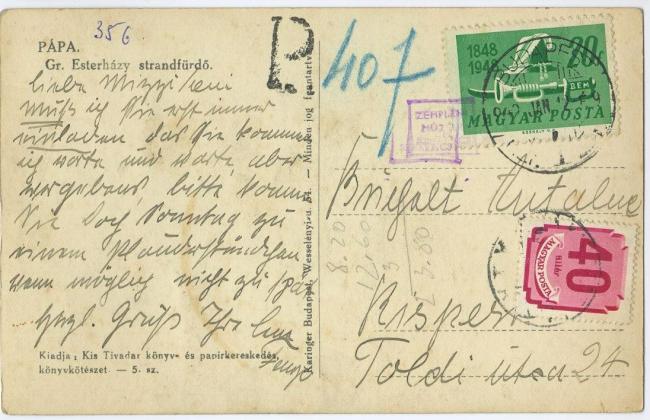 356
PÁPA.
Gr. Esterházy strandfürdő.
Liebe Mizzi
Muß ich Sie erst immer
einladen das Sie kommen
ich warte und warte aber
vergebens, bitte kommen
Sie doch Sonntag zu
einem Plauderstündchen
wenn möglich nicht zu spät
Herzl. Gruß Ihre
Kiadja: Kis Tivadar könyv- és papírkereskedés,
könyvkötészet — 5. sz.
Karinger Budapest, Wesselényi-u. 54. — Minden jog fenntartva
P
407
1848
1948
20f
BEM
MAGYAR POSTA
ZEMPLÉN
MÚZ
Antalné
8.20
12.60
3
3.80
MAGYAR POSTA
40
fillér
Kispest
Toldi utca 24